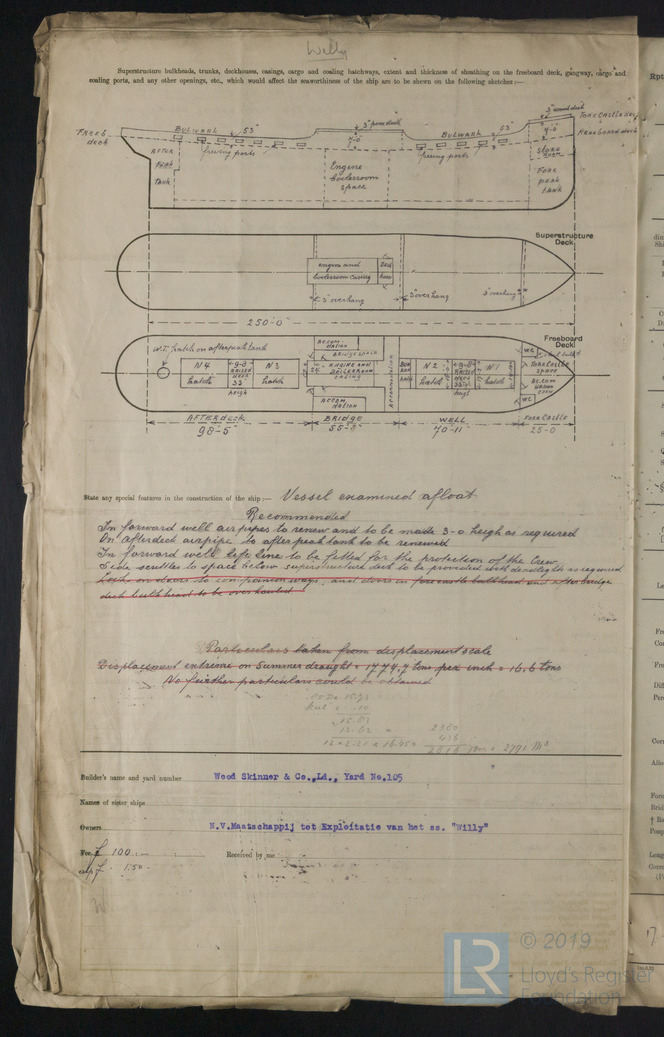 Willy
Superstructure bulkheads, trunks, deckhouses, casings, cargo and coaling hatchways, extent and thickness of sheathing on the freeboard deck, gangway, cargo and
coaling ports, and any other openings, etc., which would affect the seaworthiness of the ship are to be shewn on the following sketches:—
Freeb. deck
AFTER Peak tank
BULWARK 53"
freeing ports
7-0"
Engine boilerroom space
BULWARK 53"
freeing ports
7-0"
Forecastle deck
Freeboard deck
Store room
Fore peak tank
Superstructure Deck
engine and boilerroom casing
3" overhang
3" overhang
3" overhang
250-0"
Freeboard Deck
W.T. hatch on afterpeak tank
N4 hatch
9-0" RAISED deck 33" heigh
N3 hatch
ACCOM-DATION
BRIDGE SPACE
ENGINE AND BOILERROOM CASING
ACCOM DATION
N2 hatch
RAISED
heigh
N1 hatch
WC
Forecastle space
ACCOM DATION CREW
WC
AFTERdeck
98-5"
BRIDGE
55-8"
WELL
70-11"
Forecastle
25-0
State any special features in the construction of the ship:— Vessel examined afloat
Recommended
In forward well airpipes to renew and to be made 3-0 heigh as required
On afterdeck airpipe to afterpeak tank to be renewed
In forward well life line to be fitted for the protection of the Crew
Side scuttles to space below superstructure deck to be provided with deadlights as required
hooks on doors to companionways, and doors in forecastle bulkhead and after bridge
deck bulkhead to be overhauled
Particulars taken from displacement scale
Displacement extreme on Summer draught = 1774.7 tons per inch = 16.6 tons
No further particulars could be obtained
Builder's name and yard number Wood Skinner & Co.,Ld., Yard No.105
Names of sister ships
Owners N.V.Maatschappij tot Exploitatie van het ss. "Willy"
Fee f 100.-
f 1.50
Received by me
© 2019
LR
Lloyd's Register
Foundation